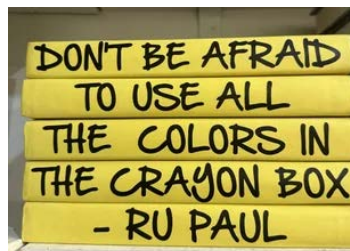 DON'T BE AFRAID
TO USE ALL
THE COLORS IN
THE CRAYON BOX
- RU PAUL